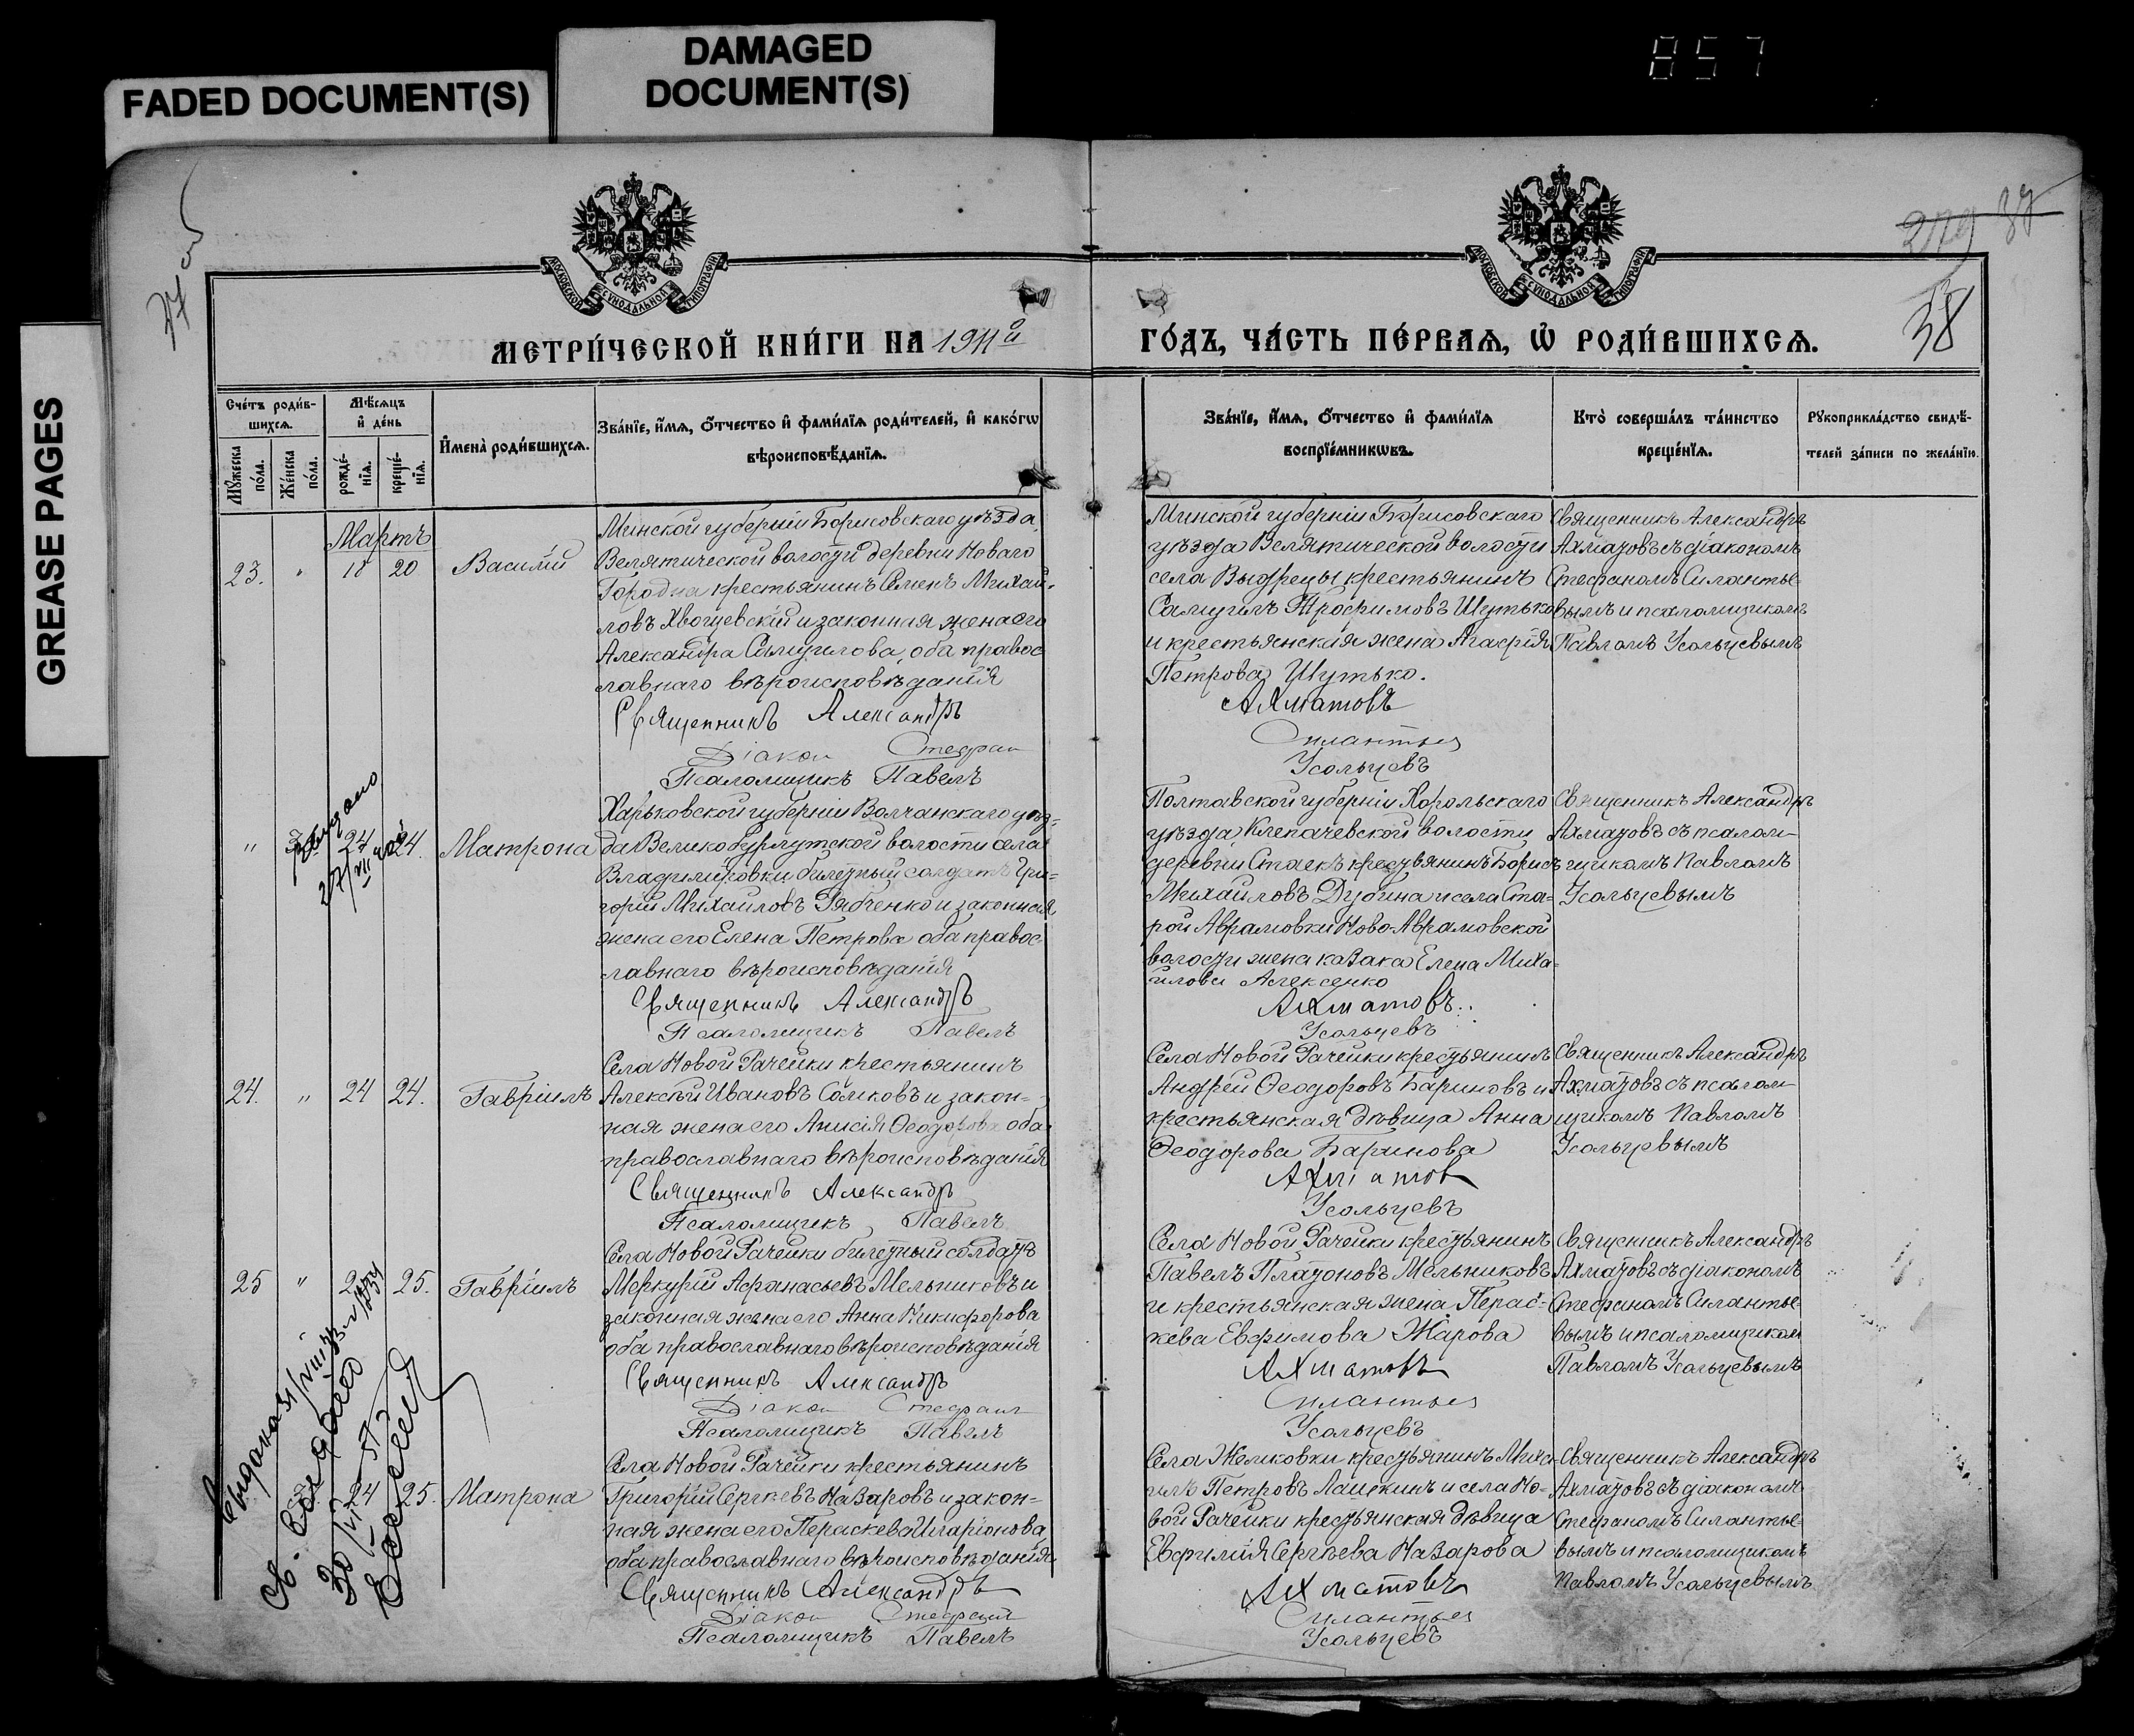 DAMAGED
DOCUMENT(S)
FADED DOCUMENT(S)
GREASE PAGES
857
279 37
38
МОСКОВСКОЙ СѴНОДАЛЬНОЙ ТИПОГРАФІИ
МОСКОВСКОЙ СѴНОДАЛЬНОЙ ТИПОГРАФІИ
МЕТРИ́ЧЕСКОЙ КНИ́ГИ НА 1911й
ГО́ДЪ, ЧА́СТЬ ПЕ́РВАѦ, Ѽ РОДИ́ВШИХСѦ.
Сче́тъ роди́в-
шихсѧ.
Мѣ́сѧцъ
и҆ де́нь
Мꙋ́жеска
по́ла.
Же́нска
по́ла.
рожде́-
нїѧ.
креще́-
нїѧ.
И҆мена̀ роди́вшихсѧ.
Зва́нїе, и҆́мѧ, ѻ҆́тчество и҆ фами́лїѧ роди́телей, и҆ како́гѡ
вѣроисповѣ́данїѧ.
Зва́нїе, и҆́мѧ, ѻ҆́тчество и҆ фами́лїѧ
воспрїе́мникѡвъ.
Кто̀ соверша́лъ та́инство
креще́нїѧ.
Рꙋкоприкла́дство свидѣ́-
телей за́писи по жела́нїю.
Мартъ
23. " 18 20 Василій
Минской губерніи Борисовскаго уѣзда,
Велятической волости деревни Новаго
Городна крестьянинъ Семенъ Михай-
ловъ Хвощевскій и законная жена его
Александра Самуилова, оба правос
лавнаго вѣроисповѣданія
Священникъ Александръ
Діакон Стефан
Псаломщикъ Павелъ
Минской губерніи Борисовскаго
уѣзда Велятической волости
села Выдрецы крестьянинъ
Самуилъ Трофимовъ Шутько
и крестьянская жена Агафія
Петрова Шутько.
Ахматовъ
Силантьев
Усольцевъ
Священникъ Александръ
Ахматовъ съ діакономъ
Стефаномъ Силантье-
вымъ и псаломщикомъ
Павломъ Усольцевымъ
" 24 24. Матрона
Харьковской губерніи Волчанскаго уѣз-
да Великобурлутской волости села
Владимировки билетный солдатъ Гри-
горій Михайловъ Рябченко и законная
жена его Елена Петрова оба правос
лавнаго вѣроисповѣданія
Священникъ Александръ
Псаломщикъ Павелъ
Полтавской губерніи Хорольскаго
уѣзда, Клепачевской волости
деревни Стаекъ крестьянинъ Борисъ
Михайловъ Дубина и села Ста-
рой Аврамовки Ново-Аврамовской
волости жена казака Елена Миха-
илова Алексенко
Ахматовъ
Усольцевъ
Священникъ Александръ
Ахматовъ съ псалом-
щикомъ Павломъ
Усольцевымъ
24. " 24 24. Гавріилъ
Села Новой Рачейки крестьянинъ
Алексѣй Ивановъ Сомковъ и закон-
ная жена его Анисія Ѳеодорова оба
православнаго вѣроисповѣданія
Священникъ Александръ
Псаломщикъ Павелъ
Села Новой Рачейки крестьянинъ
Андрей Ѳеодоровъ Бариновъ и
крестьянская дѣвица Анна
Ѳеодорова Баринова
Ахматов
Усольцевъ
Священникъ Александръ
Ахматовъ съ псалом-
щикомъ Павломъ
Усольцевымъ
25 " 25. Гавріилъ
Села Новой Рачейки билетный солдатъ
Меркурій Афанасьевъ Мельниковъ и
законная жена его Анна Никифорова
оба православнаго вѣроисповѣданія
Священникъ Александръ
Діакон Стефан
Псаломщикъ Павелъ
Села Новой Рачейки крестьянинъ
Павелъ Платоновъ Мельниковъ
и крестьянская жена Парас-
кева Евфимова Жарова
Ахматовъ
Силантьев
Усольцевъ
Священникъ Александръ
Ахматовъ съ діакономъ
Стефаномъ Силантье-
вымъ и псаломщиком
Павломъ Усольцевымъ
24 25. Матрона
Села Новой Рачейки крестьянинъ
Григорій Сергѣевъ Назаровъ и закон-
ная жена его Параскева Иларіонова
оба православнаго вѣроисповѣданія
Священникъ Александръ
Діакон Стефан
Псаломщикъ Павелъ
Села Жемковки крестьянинъ Миха-
илъ Петровъ Лашкинъ и села Но-
вой Рачейки крестьянская дѣвица
Евфимія Сергѣева Назарова
Ахматовъ
Силантьев
Усольцевъ
Священникъ Александръ
Ахматовъ съ діакономъ
Стефаномъ Силантье-
вымъ и псаломщикомъ
Павломъ Усольцевымъ